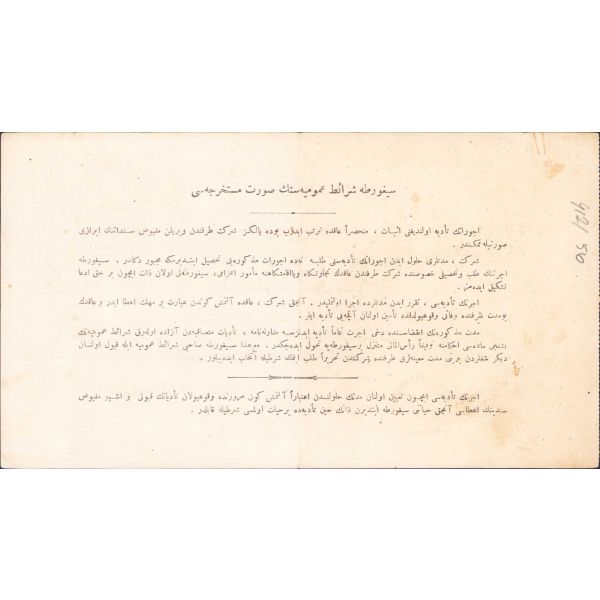 سیغورطه شرائط عمومیه‌سنك صورت مستخرجه‌سی
اجوراتك تأدیه اولندیغی اثبات ، منحصراً عاقده ترتب ایدوب بوده یالكز شركت طرفندن ویریلن مقبوض سنداتنك ابرازی
صورتیله ممكندر .
شركت ، مدتلری حلول ایدن اجوراتك تأدیه‌سنی طلبه نه‌ده اجورات مذكوره‌یی تحصیل ایتدیرمكه مجبور دكلدر . سیغورطه
اجرتنك طلب وتحصیلی خصوصنده شركت طرفندن عاقدك تجارتكاه ویااقامتكاهنه مأمور اعزامی، سیغورطه‌لی اولان ذات ایچون بر حق ادعا
تشكیل ایده‌مز .
اجرتك تأدیه‌سی ، تقرر ایدن مدتلرده اجرا اولنملیدر . آنجق شركت ، عاقده آلتمش كوندن عبارت بر مهلت اعطا ایدر وعاقدك
بومدت ظرفنده وفاتی وقوعبولدقده تأمین اولنان آقچه‌یی تأدیه ایلر .
مدت مذكوره‌نك انقضاسنده دخی اجرت تماماً تأدیه ایدلمزسه مقاوله‌نامه ، تأدیات متعاقبه‌دن آزاده اوله‌رق شرائط عمومیه‌نك
بشنجی ماده‌سی احكامنه وفیقاً رأس‌المالی متنزل برسیغورطه‌یه تحول ایده‌جكدر . مع‌هذا سیغورطه صاحبی شرائط عمومیه ایله قبول اولنان
دیكر شقلردن برینی مدت معینه‌لری ظرفنده شركتدن تحریراً طلب ایتمك شرطیله انتخاب ایده‌بیلور .
اجرتك تأدیه‌سی ایچون تعیین اولنان مدتك حلولندن اعتباراً آلتمش كون مرورنده وقوعبولان تأدیاتك قبولی و اشبو مقبوض
سندینك اعطاسی آنجق حیاتی سیغورطه ایتدیرن ذاتك حین تأدیه‌ده برحیات اولمسی شرطیله قابلدر .